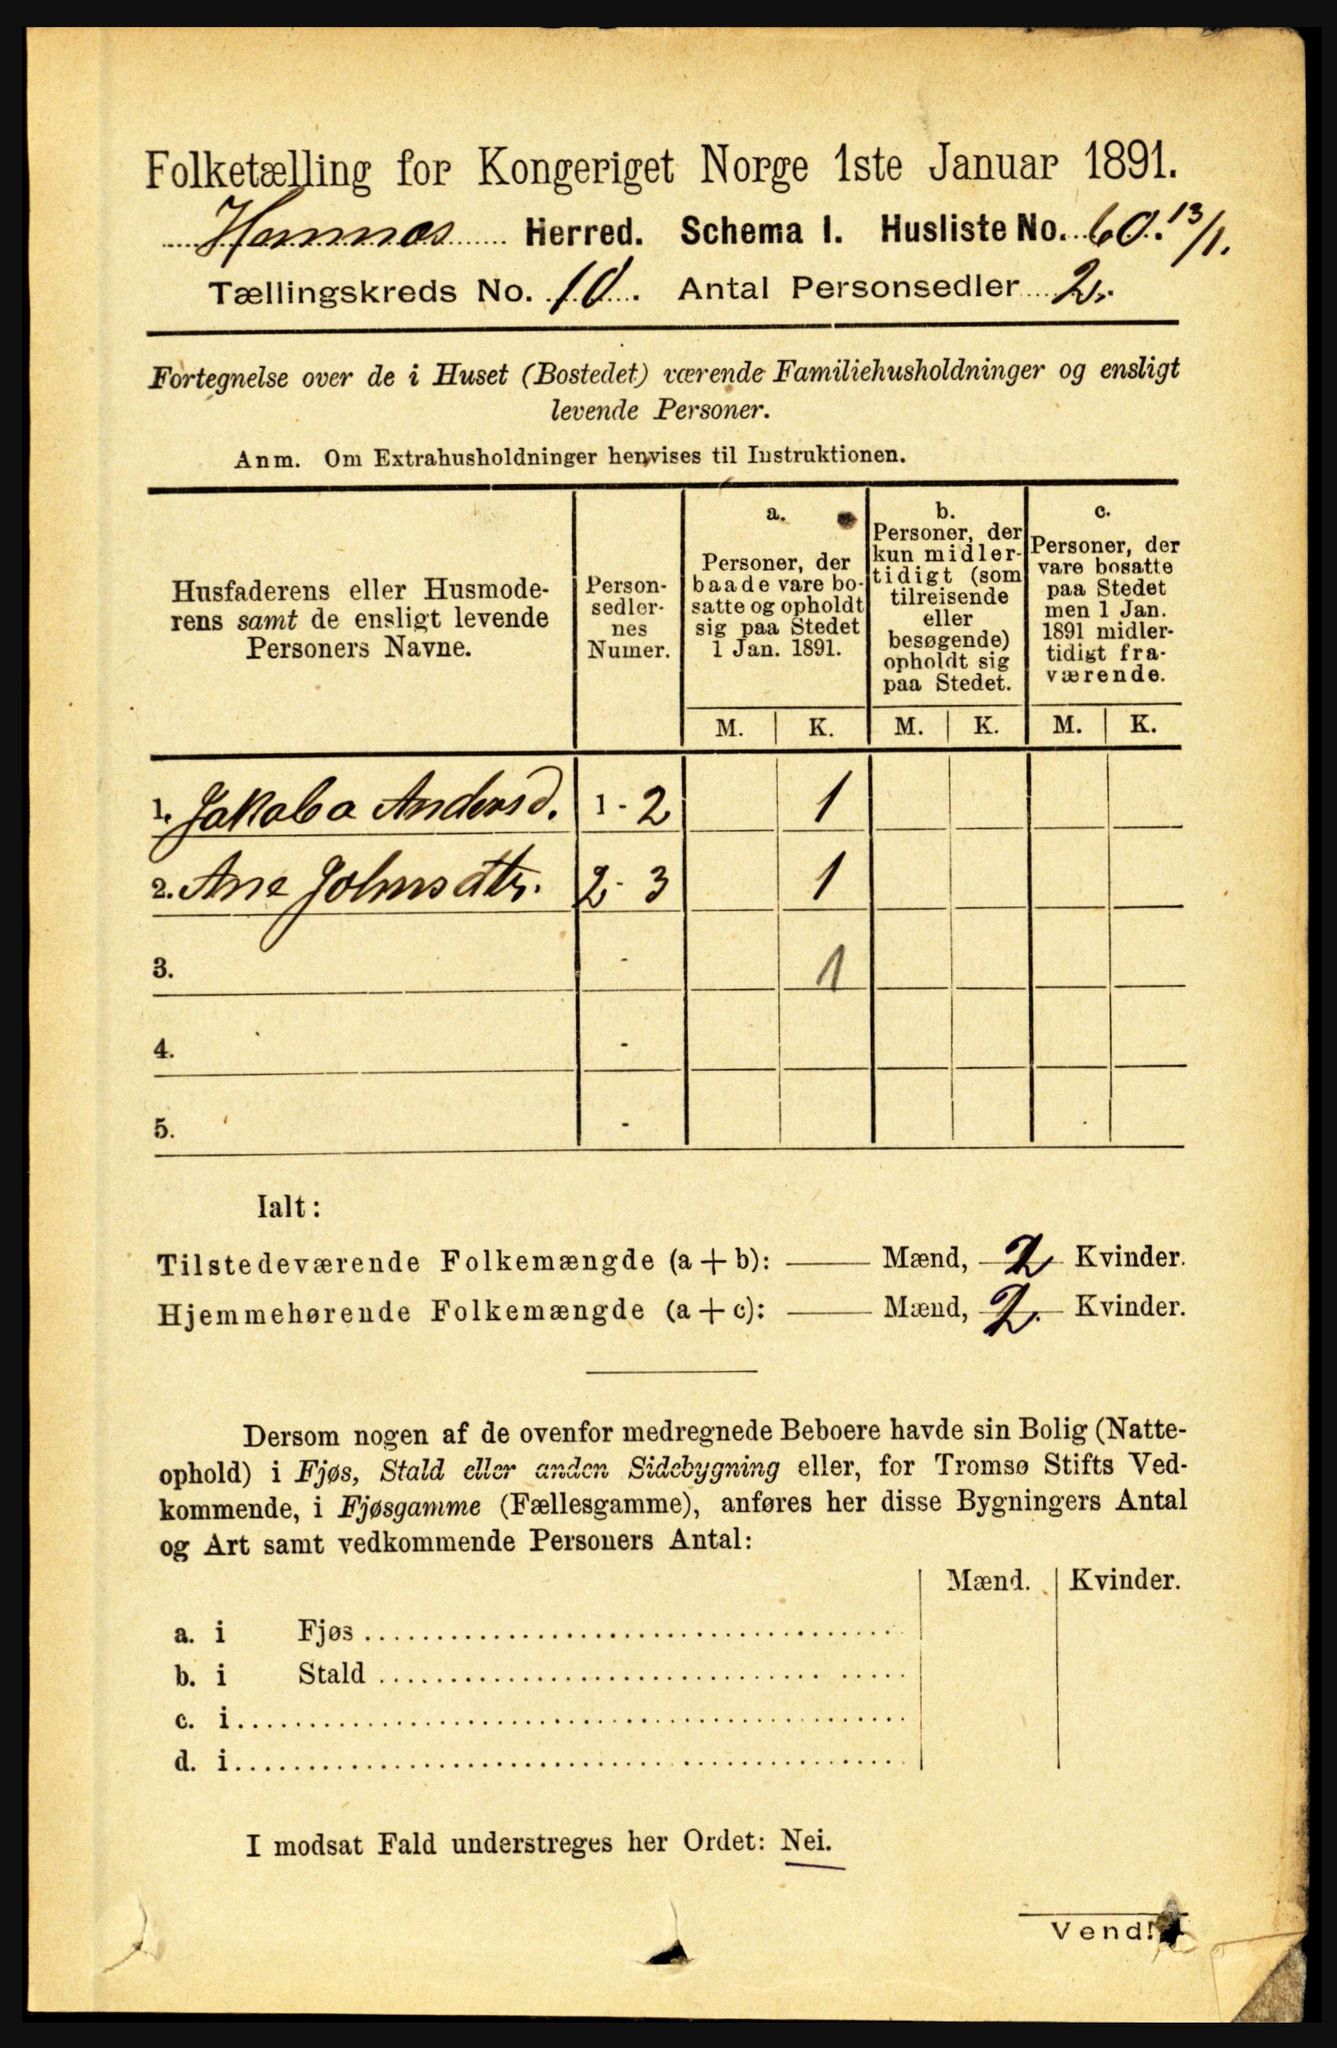 Folketælling for Kongeriget Norge 1ste Januar 1891.
Hemnæs Herred. Schema I. Husliste No. 60. 13/1.
Tællingskreds No. 10. Antal Personsedler 2.
Fortegnelse over de i Huset (Bostedet) værende Familiehusholdninger og ensligt
levende Personer.
Anm. Om Extrahusholdninger henvises til Instruktionen.
Husfaderens eller Husmode-
rens samt de ensligt levende
Personers Navne.
Person-
sedler-
nes
Numer.
a.
Personer, der
baade vare bo-
satte og opholdt
sig paa Stedet
1 Jan. 1891.
b.
Personer, der
kun midler-
tidigt (som
tilreisende
eller
besøgende)
opholdt sig
paa Stedet.
c.
Personer, der
vare bosatte
paa Stedet
men 1 Jan.
1891 midler-
tidigt fra-
værende.
M. K. M. K. M. K.
1. Jakoba Andersd. 1 - 2 1
2. Ane Johnsdtr. 2 - 3 1
3. - 1
4. -
5. -
Ialt:
Tilstedeværende Folkemængde (a + b): Mænd, 2 Kvinder.
Hjemmehørende Folkemængde (a + c): Mænd, 2. Kvinder.
Dersom nogen af de ovenfor medregnede Beboere havde sin Bolig (Natte-
ophold) i Fjøs, Stald eller anden Sidebygning eller, for Tromsø Stifts Ved-
kommende, i Fjøsgamme (Fællesgamme), anføres her disse Bygningers Antal
og Art samt vedkommende Personers Antal:
Mænd. Kvinder.
a. i Fjøs
b. i Stald
c. i
d. i
I modsat Fald understreges her Ordet: Nei.
Vend!